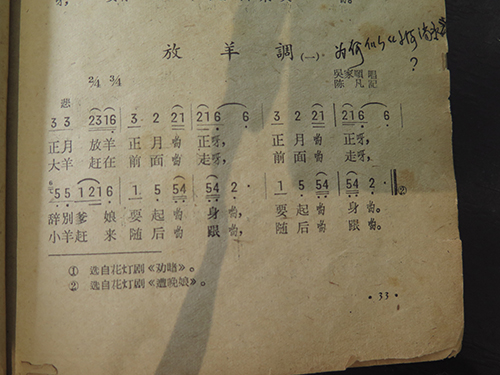 放羊調(一)
吳家順 唱
2/4 3/4
陈凡 記
悲
3 3 2316 3 2 21 216 6 3 2 21 216 6
正月 放羊 正月 哟 正呀, 正月 哟 正呀,
大羊 赶在 前面 哟 走呀, 前面 哟 走呀,
55 1216 1 5 54 54 2 1 5 54 54 2 ②
辞別爹 娘 要起 哟 身 哟, 要起 哟 身 哟。
小羊赶 来 随后 哟 跟 哟, 随后 哟 跟 哟。
① 选自花灯剧《劝賭》。
② 选自花灯剧《遭晚娘》。
·33·